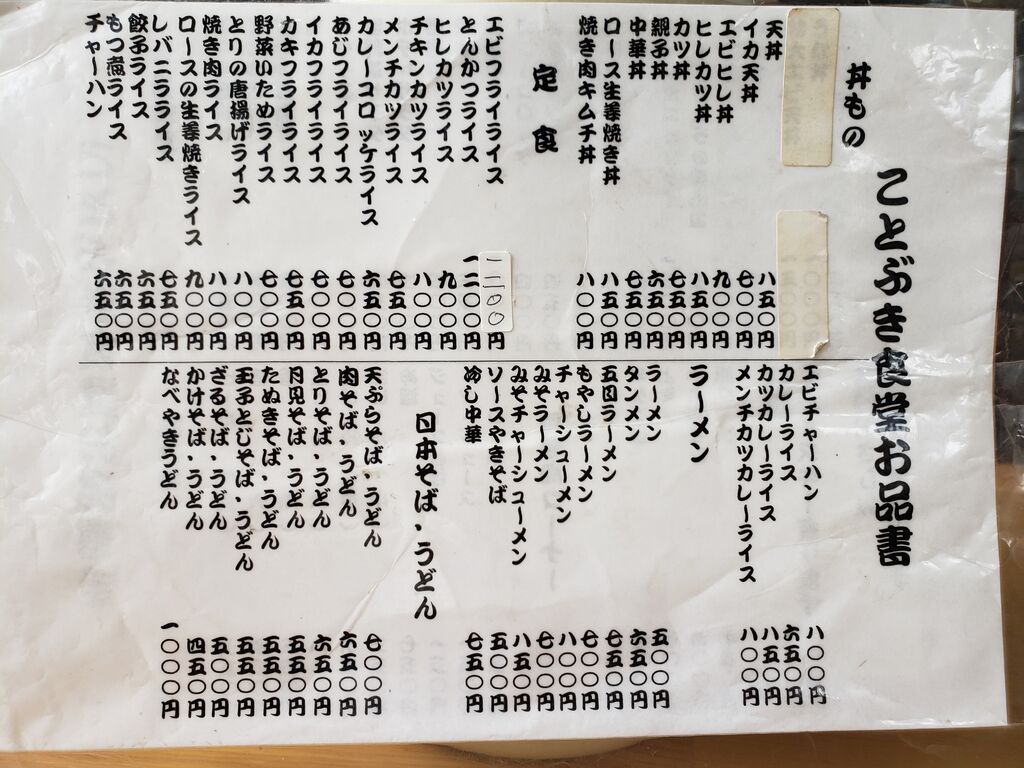 ことぶき食堂お品書
丼もの
天丼 八五〇円
イカ天丼 七〇〇円
エビヒレ丼 九〇〇円
ヒレカツ丼 八五〇円
カツ丼 七五〇円
親子丼 六五〇円
中華丼 七五〇円
ロース生姜焼き丼 八五〇円
焼き肉キムチ丼 八〇〇円
定食
エビフライライス 一二〇〇円
とんかつライス 一二〇〇円
ヒレカツライス 九〇〇円
チキンカツライス 八〇〇円
メンチカツライス 七五〇円
カレーコロッケライス 六五〇円
あじフライライス 七〇〇円
イカフライライス 七〇〇円
カキフライライス 七五〇円
野菜いためライス 七〇〇円
とりの唐揚げライス 八〇〇円
焼き肉ライス 八〇〇円
ロースの生姜焼きライス 九〇〇円
レバニラライス 七五〇円
餃子ライス 六五〇円
もつ煮ライス 六五〇円
チャーハン 六五〇円
エビチャーハン 八〇〇円
カレーライス 六五〇円
カツカレーライス 八五〇円
メンチカツカレーライス 八〇〇円
ラーメン
ラーメン 五〇〇円
タンメン 六五〇円
五目ラーメン 七五〇円
もやしラーメン 七〇〇円
チャーシューメン 八〇〇円
みそラーメン 七〇〇円
みそチャーシューメン 八五〇円
ソースやきそば 五五〇円
冷し中華 七五〇円
日本そば・うどん
天ぷらそば・うどん 七〇〇円
肉そば・うどん 六五〇円
とりそば・うどん 六五〇円
月見そば・うどん 五五〇円
たぬきそば・うどん 五五〇円
玉子とじそば・うどん 五五〇円
ざるそば・うどん 五〇〇円
かけそば・うどん 四五〇円
なべやきうどん 一〇〇〇円